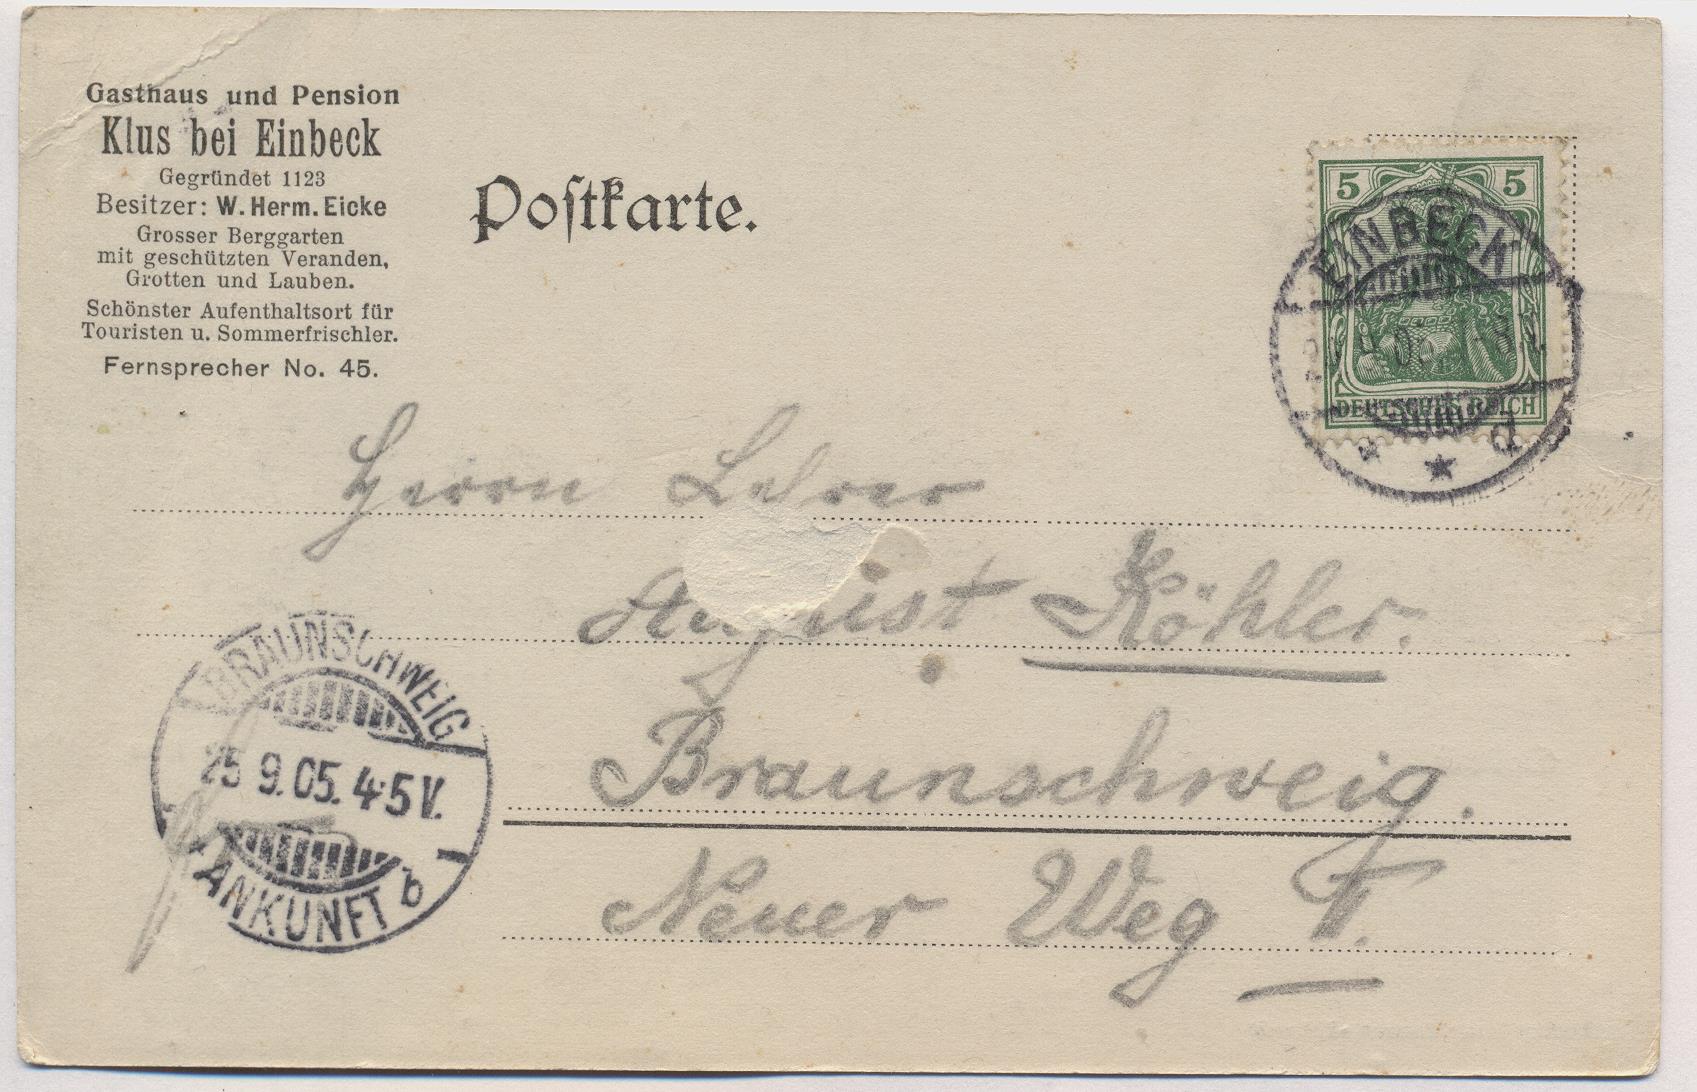 Gasthaus und Pension
Klus bei Einbeck
Gegründet 1123
Besitzer: W. Herm. Eicke
Grosser Berggarten
mit geschützten Veranden,
Grotten und Lauben.
Schönster Aufenthaltsort für
Touristen u. Sommerfrischler.
Fernsprecher No. 45.
Poſtkarte.
5 5
DEUTSCHES REICH
EINBECK
d
Herrn Lehrer
August Köhler.
Braunschweig.
Neuer Weg
BRAUNSCHWEIG
25 9. 05. 4-5 V.
ANKUNFT b